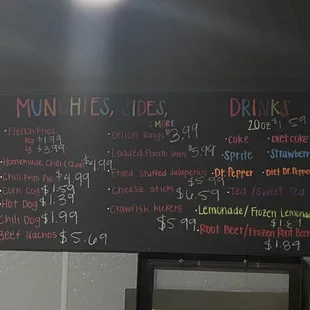 MUNCHIES, SIDES,
& MORE
· French Fries
Reg $1.99
Lg $3.99
· Homemade Chili (12oz) $4.99
· Chili Frito Pie $4.99
· Corn Dog $1.59
· Hot Dog $1.39
Chili Dog $1.99
Beef Nachos $5.69
· Onion Rings $3.99
· Loaded Potato $5.99
· Fried Stuffed Jalapenos
$5.99
· Cheese sticks $6.59
· Crawfish kickers
$5.99
DRINKS
20oz $1.59
· Coke
· Diet Coke
· Sprite
· Strawberry
· Dr. Pepper
· Diet Dr. Pepper
· Tea/Sweet Tea
· Lemonade/Frozen Lemonade
· Root Beer/Frozen Root Beer
$1.89